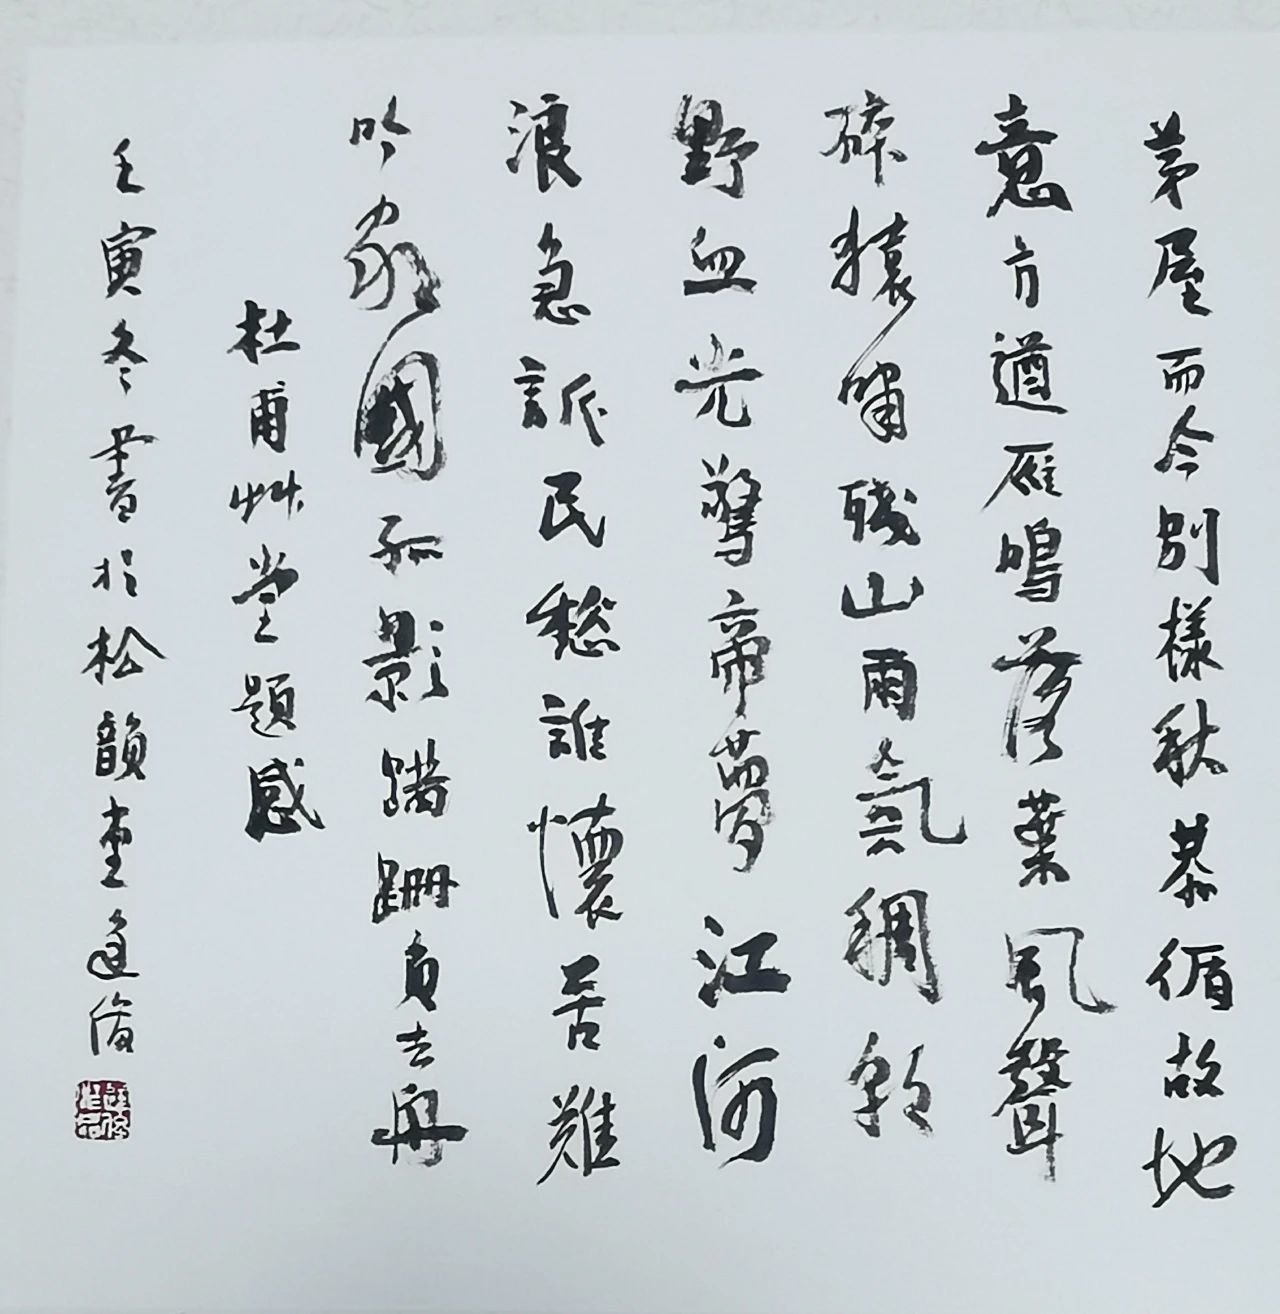 茅屋而今別樣秋暮循故地
意方遒雁鳴落葉風聲
碎猿啸殘山雨氣稠郭
野血光驚帝夢江河
浪急訴民愁誰懷苦難
吟家國孤影蹒跚負去舟
杜甫艸堂題感
壬寅冬書於松韻堂